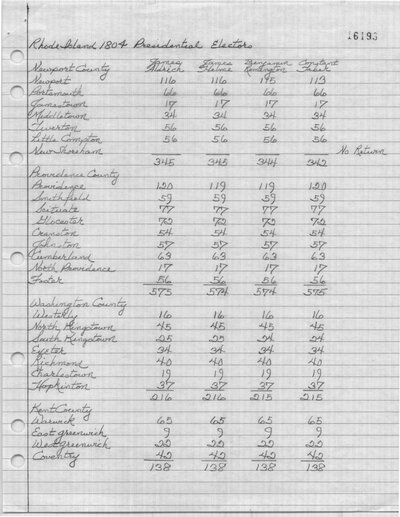 16193
Rhode Island 1804 Presidential Electors
James James Benjamin Constant
Newport County Aldrich Helme Remington Taber
Newport 116 116 115 113
Portsmouth 66 66 66 66
Jamestown 17 17 17 17
Middletown 34 34 34 34
Tiverton 56 56 56 56
Little Compton 56 56 56 56
New Shoreham No Return
345 345 344 342
Providence County
Providence 120 119 119 120
Smithfield 59 59 59 59
Scituate 77 77 77 77
Glocester 72 72 72 72
Cranston 54 54 54 54
Johnston 57 57 57 57
Cumberland 63 63 63 63
North Providence 17 17 17 17
Foster 56 56 56 56
575 574 574 575
Washington County
Westerly 16 16 16 16
North Kingstown 45 45 45 45
South Kingstown 25 25 24 24
Exeter 34 34 34 34
Richmond 40 40 40 40
Charlestown 19 19 19 19
Hopkinton 37 37 37 37
216 216 215 215
Kent County
Warwick 65 65 65 65
East Greenwich 9 9 9 9
West Greenwich 22 22 22 22
Coventry 42 42 42 42
138 138 138 138